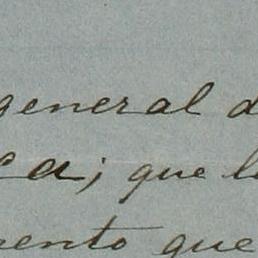 general d
ca; que l
mento que